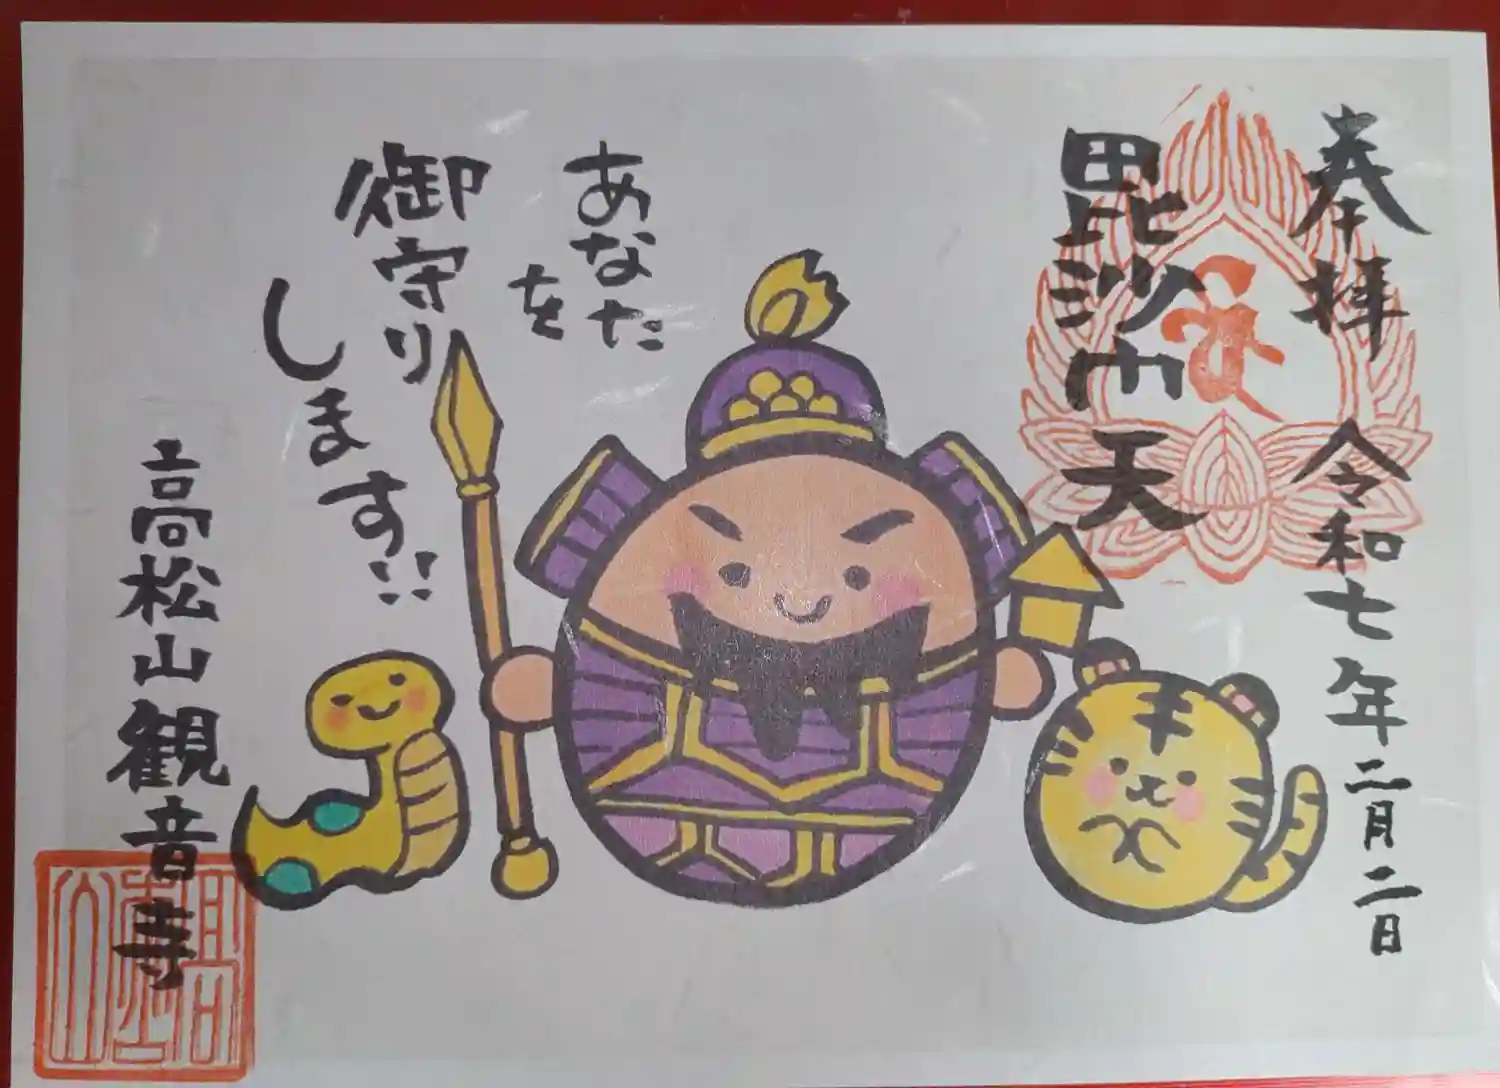 奉拝 令和七年二月二日
毘沙門天
あなた
を
御守り
します!!
高松山観音寺